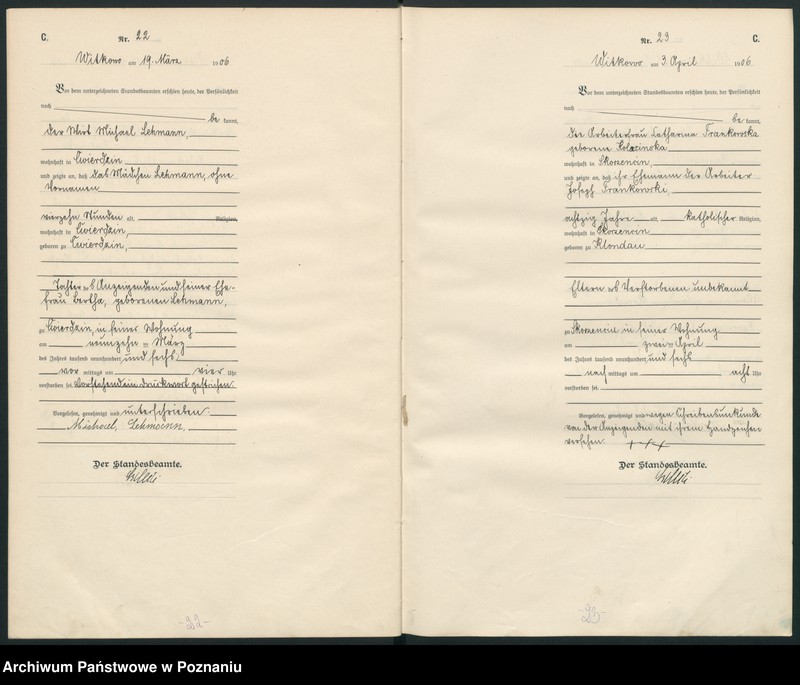 C.
Nr. 22
Witkowo am 19. März 1906
Vor dem unterzeichneten Standesbeamten erschien heute, der Persönlichkeit
nach
be kannt,
der Wirt Michael Lehmann,
wohnhaft in Ćwierdzin
und zeigte an, daß das Mädchen Lehmann, ohne
Vornamen
vierzehn Stunden alt, Religion,
wohnhaft in Ćwierdzin,
geboren zu Ćwierdzin,
Tochter des Anzeigenden und seiner Ehe-
frau Bertha, geborenen Lehmann,
zu Ćwierdzin, in seiner Wohnung
am neunzehn ten März
des Jahres tausend neunhundert und sechs
vor mittags um vier Uhr
verstorben sei. Vorstehend ein Druckwort gestrichen.
Vorgelesen, genehmigt und unterschrieben.
Michael, Lehmann,
Der Standesbeamte.
-22-
Nr. 23
C.
Witkowo am 3. April 1906
Vor dem unterzeichneten Standesbeamten erschien heute, der Persönlichkeit
nach
be kannt,
die Arbeiterfrau Catharina Frankowska
geborene
wohnhaft in Skorzencin
und zeigte an, daß ihr Ehemann der Arbeiter
Joseph Frankowski,
achtzig Jahre alt, katholischer Religion,
wohnhaft in Skorzencin
geboren zu
Eltern des Verstorbenen unbekannt
zu Skorzencin in seiner Wohnung
am zwei ten April
des Jahres tausend neunhundert und sechs
nach mittags um acht Uhr
verstorben sei.
Vorgelesen, genehmigt und wegen Schreibensunkunde
von der Anzeigenden mit ihrem Handzeichen
versehen. +++
Der Standesbeamte.
-23-
Archiwum Państwowe w Poznaniu